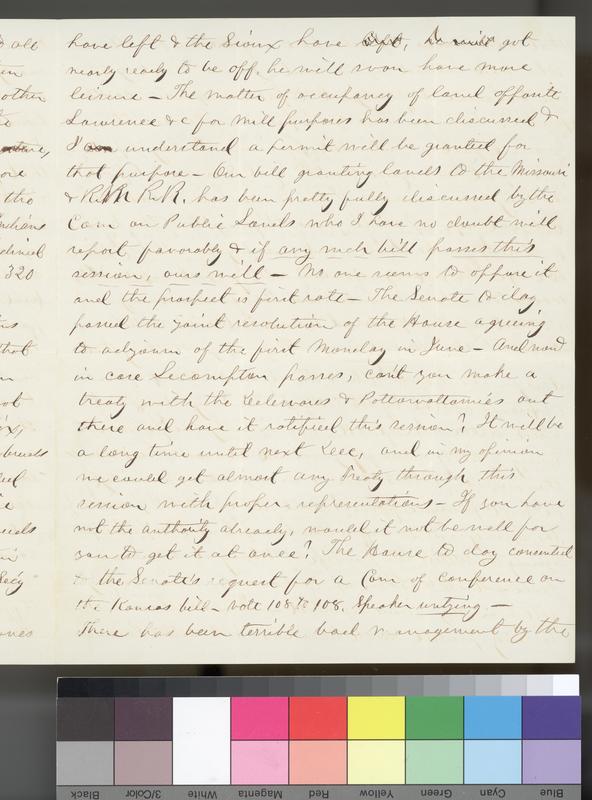 have left & the Sioux have left, he will got
nearly ready to be off, he will soon have more
leisure – The matter of occupancy of land opposite
Lawrence &c for mill purposes has been discussed &
I am understand a permit will be granted for
that purpose – Our bill granting lands to the Missouri
& R.R. has been pretty fully discussed by the
Com on Public Lands who I have no doubt will
report favorably & if any such bill passes this
session, ours will – No one seems to oppose it
and the prospect is first rate – The Senate to day
passed the joint resolution of the House agreeing
to adjourn of the first Monday in June – And now
in case Lecompton passes, can't you make a
treaty with the Delewares & Pottowattamies out
there and have it ratified this session? It will be
a long time until next Decc, and in my opinion
we could get almost any Treaty through this
session with proper representations – If you have
not the authority already, would it not be well for
you to get it at once? The House to day consented
to the Senate's request for a Com of conference on
the Kansas bill – vote 108 to 108, Speaker untying –
There has been terrible bad management by the
all
other
the
320
that
not
ones
Black
3/Color
White
Magenta
Red
Yellow
Green
Cyan
Blue